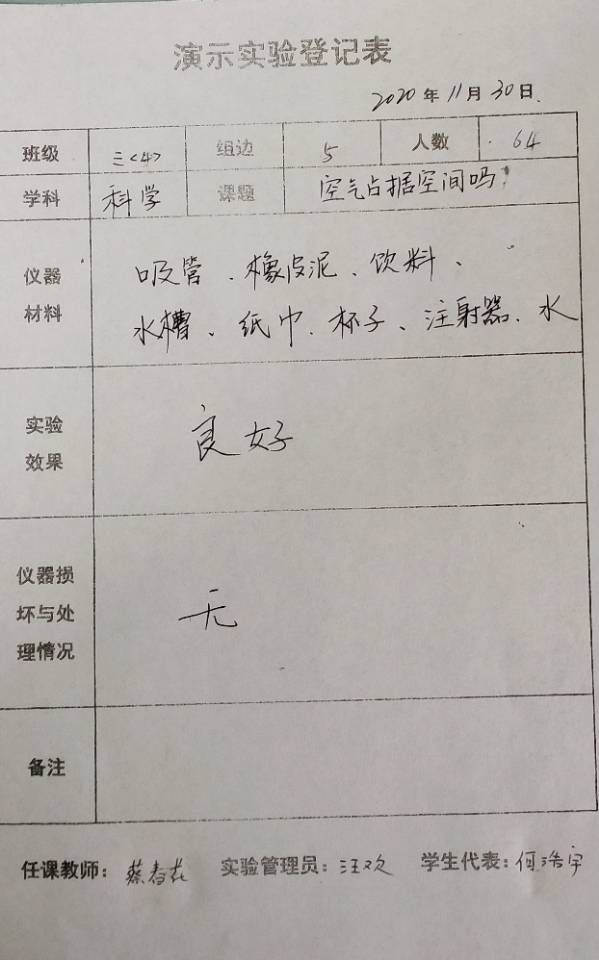 演示实验登记表
2020年11月30日.
班级 三<4> 组边 5 人数 64
学科 科学 课题 空气占据空间吗?
仪器
材料
吸管、橡皮泥、饮料、
水槽、纸巾、杯子、注射器、水
实验
效果
良好
仪器损
坏与处
理情况
无
备注
任课教师: 蔡春花 实验管理员: 汪欢 学生代表: 何浩宇